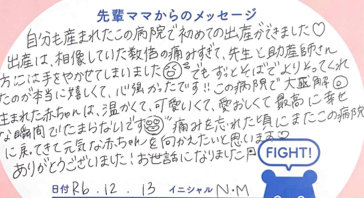 先輩ママからのメッセージ
自分も産まれたこの病院で初めての出産ができました♡
出産は、想像していた数倍の痛みすぎて、先生と助産師さん
方には手をやかせてしまいました でもずっとそばでよりそってくれ
たのが本当に嬉しくて、心強かったです!! この病院で大正解◎
生まれた赤ちゃんは、温かくて、可愛いくて、愛おしくて最高に幸せ
な瞬間でたまらないです 痛みを忘れた頃にまたこの病院
に戻ってきて元気な赤ちゃんを向かえたいと思います
ありがとうございました!お世話になりました
FIGHT!
日付 R6.12.13 イニシャル N・M